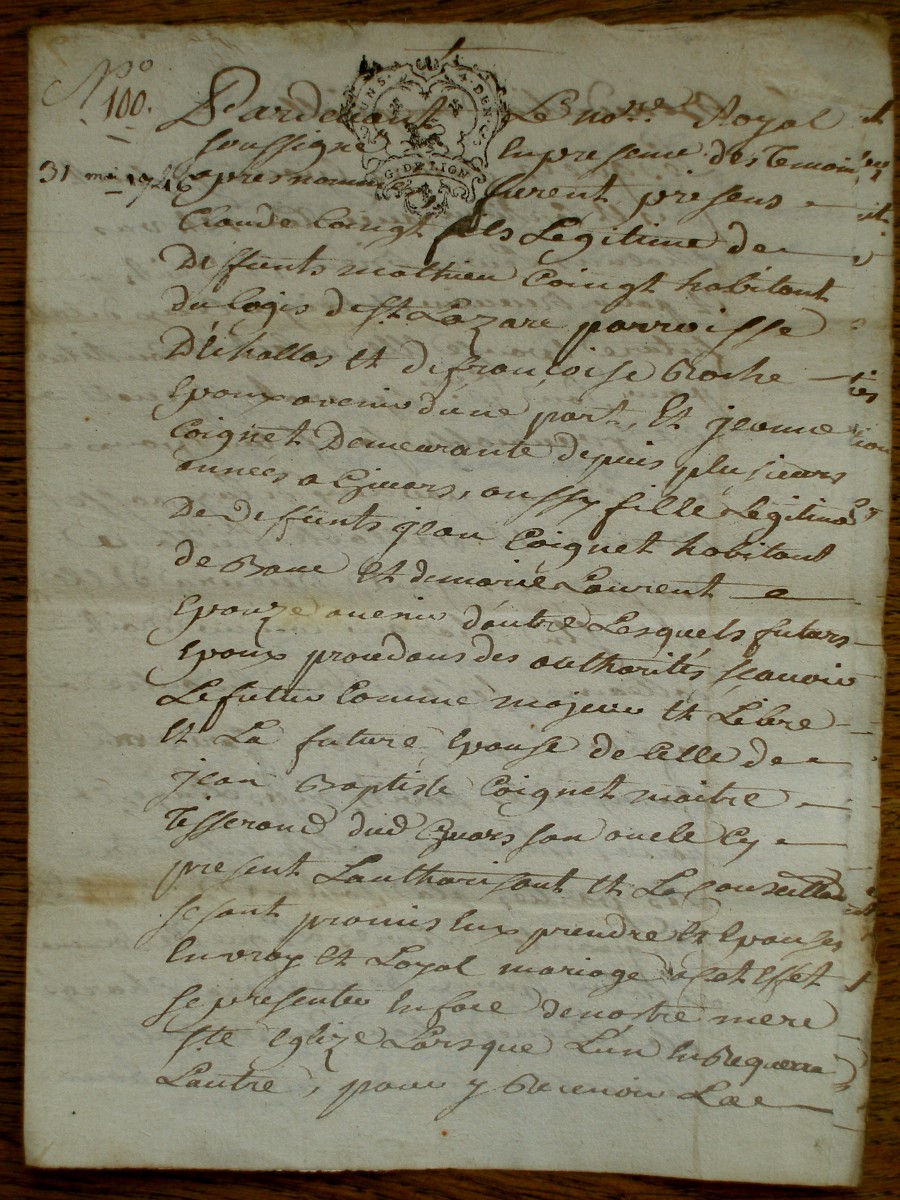 N.º
100.
31 mai 1746
G. DE LION
Pardevant Le no.re Royal
soussigné En presence des Temoins
apres nommes furent presens
Claude Coingt fils Legitime de
Deffunts mathieu Coingt habitant
du logis de St Lazare parroisse
D'Echallas et de françoise Roche
Epoux avenir d'une part, Et jeanne
Coignet Demeurante depuis plusieurs
années a Givors, aussy fille Legitime
De deffunts jean Coignet habitant
de Et de marie Laurent
Epouze avenir d'autre Lesquels futurs
Epoux procedans des authorités, sçavoir
Le futur Comme majeur et Libre
et La future Epouse de Celle de
jean Baptiste Coignet maitre
Tisserand dud Givors son oncle Cy
present Lauthorisant et La Conseillant
se sont promis Eux prendre et Epouser
En vray et Loyal mariage a cet Effet
se presenter En face de nostre mere
ste Eglize Lorsque L'un En Requerra
Lautre, pour y Recevoir La